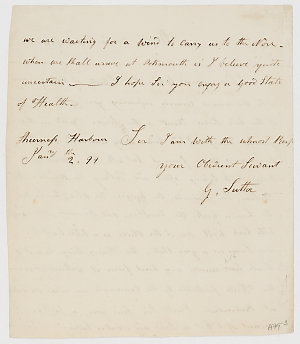 we are waiting for a Wind to carry us to the Nore -
when we shall arrive at Portsmouth is I believe quite
uncertain — I hope Sir you enjoy a good State
of Health -
Sheerness Harbour Sir I am with the utmost Resp
Jany 2. 91 your Obedient Servant
G. Suttor